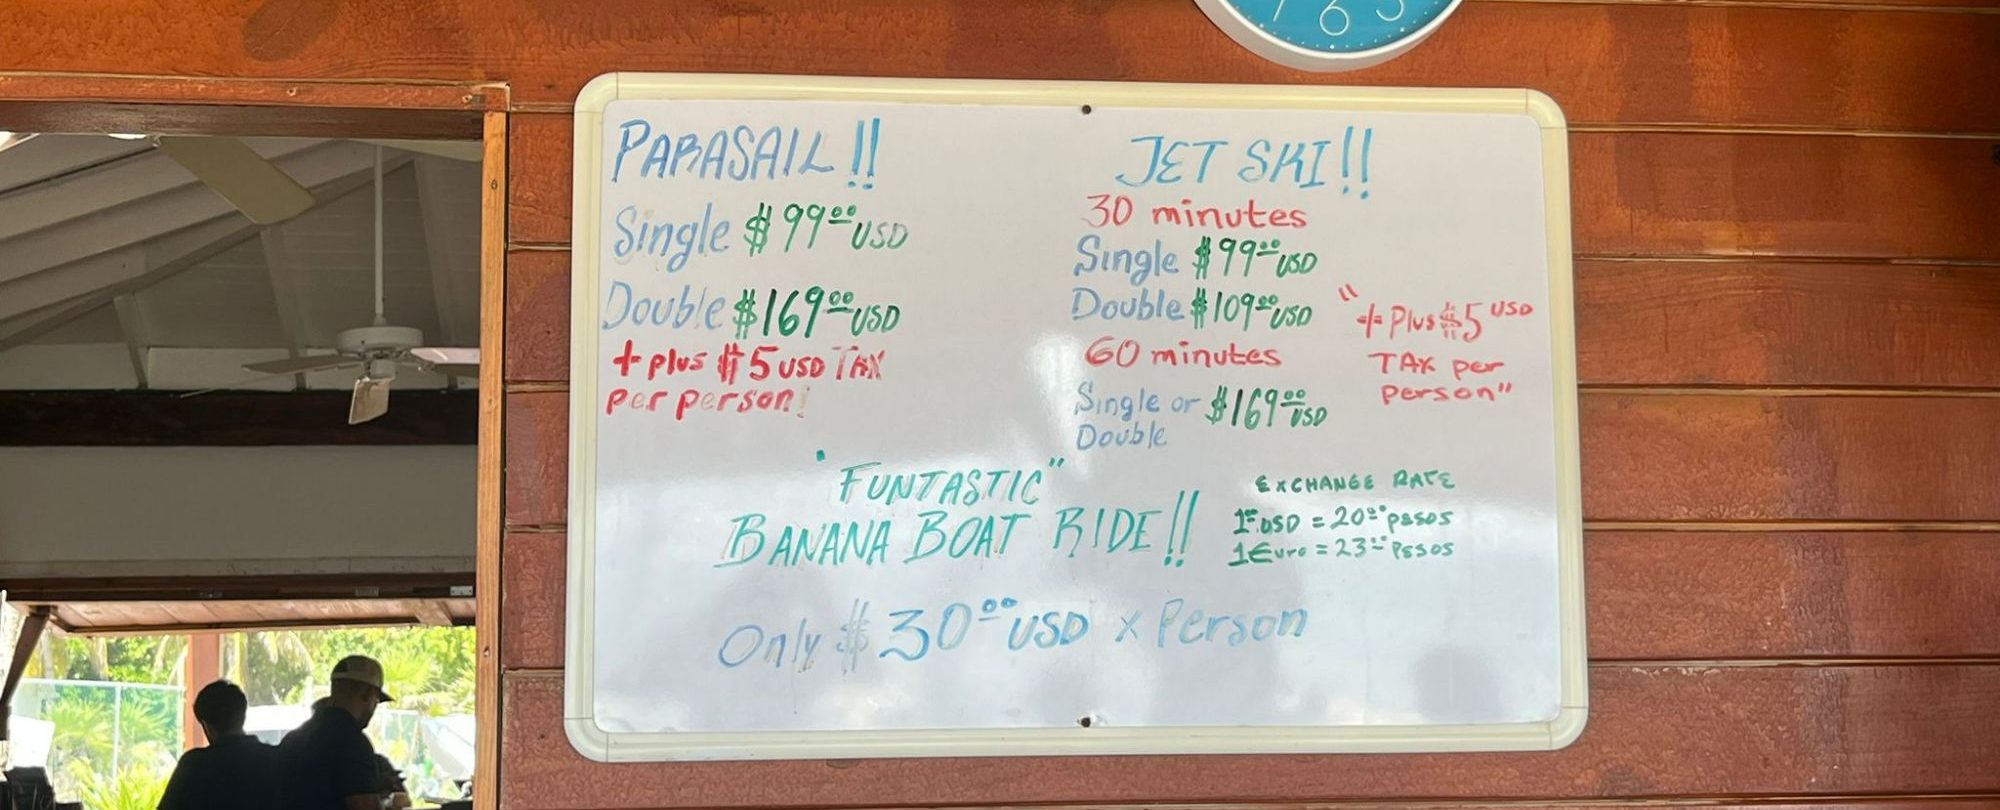 PARASAIL!!
Single $99.00 USD
Double $169.00 USD
+ plus $5 USD TAX
per person!
JET SKI!!
30 minutes
Single $99.00 USD
Double $109.00 USD
60 minutes
Single or $169.00 USD
Double
"+ Plus $5 USD
TAX per
person"
"FUNTASTIC"
BANANA BOAT RIDE!!
Only $30.00 USD x Person
EXCHANGE RATE
1.00 USD = 20.00 pesos
1 Euro = 23.00 Pesos
7 6 5